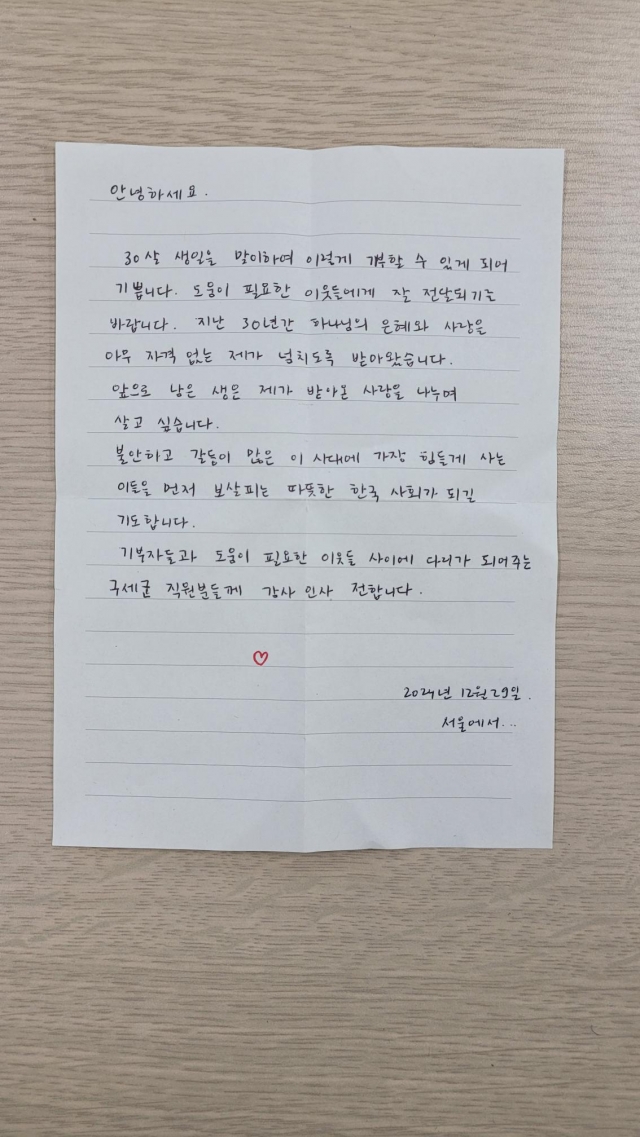 안녕하세요.
30살 생일을 맞이하여 이렇게 기부할 수 있게 되어
기쁩니다. 도움이 필요한 이웃들에게 잘 전달되기를
바랍니다. 지난 30년간 하나님의 은혜와 사랑을
아무 자격 없는 제가 넘치도록 받아왔습니다.
앞으로 남은 생은 제가 받아온 사랑을 나누며
살고 싶습니다.
불안하고 갈등이 많은 이 시대에 가장 힘들게 사는
이들을 먼저 보살피는 따뜻한 한국 사회가 되길
기도합니다.
기부자들과 도움이 필요한 이웃들 사이에 다리가 되어주는
구세군 직원분들께 감사 인사 전합니다.
2024년 12월 29일.
서울에서...